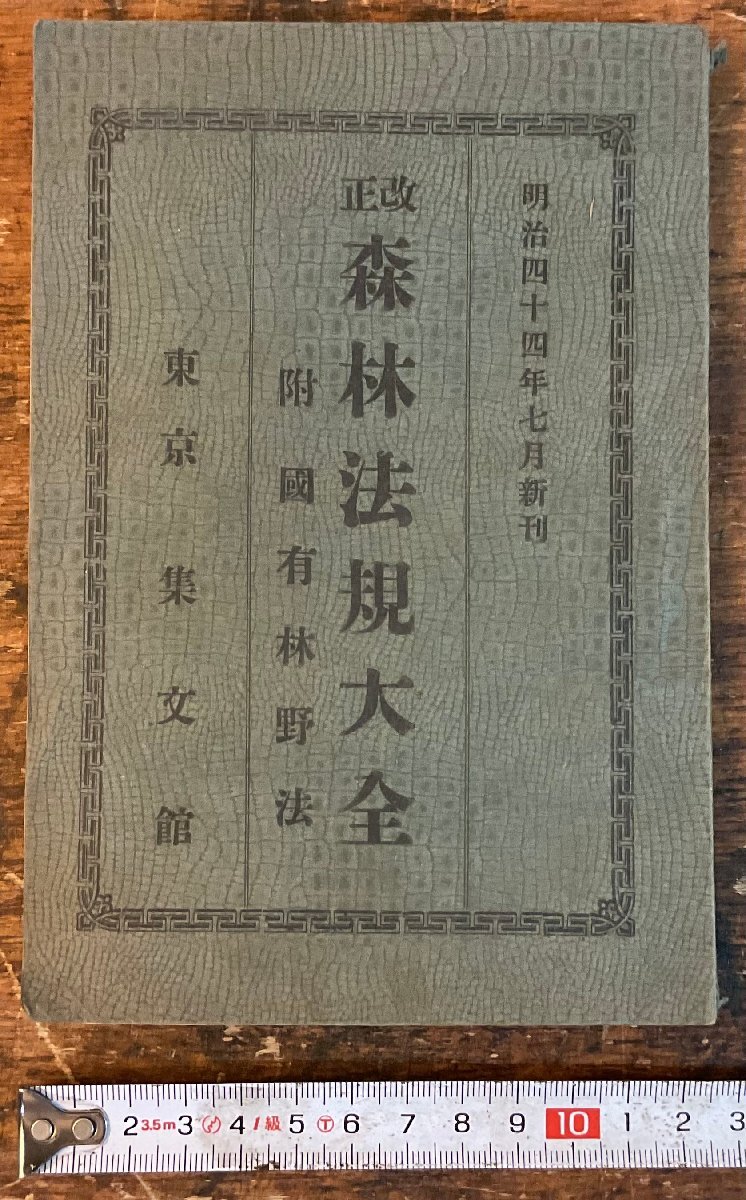 明治四十四年七月新刊
改正
森林法規大全
附國有林野法
東京集文館
2 3.5m 3 4 1級 5 T 6 7 8 9 10 1 2 3